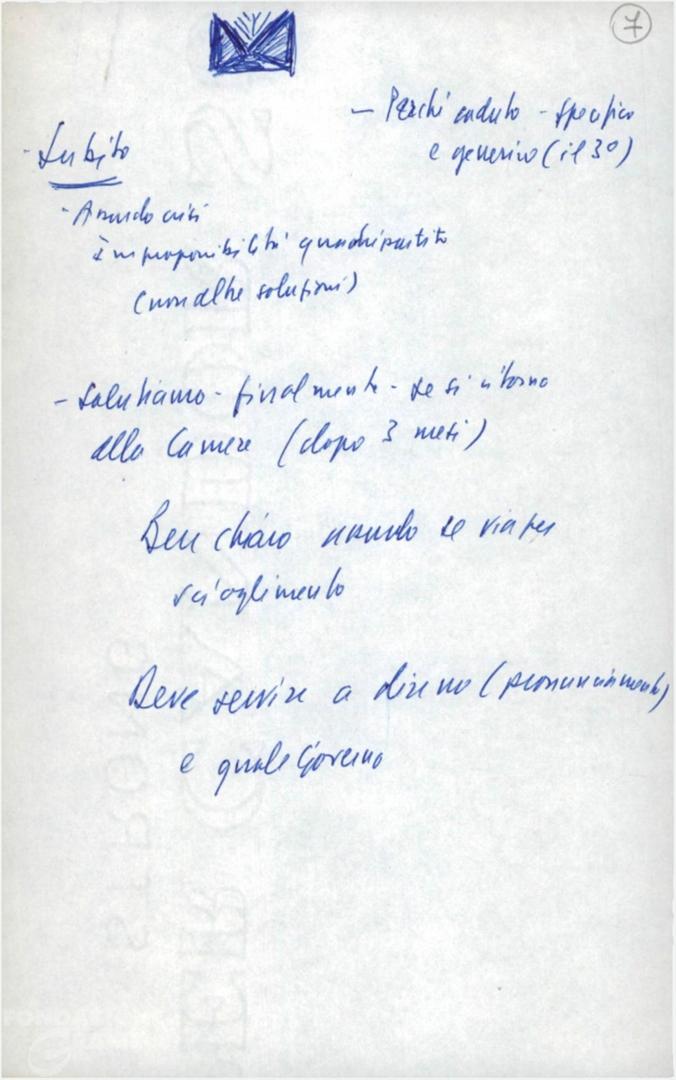 7
- Perché caduto - specifico
e generico (il 3°)
- Subito
- crisi
improponibilità quadripartito
(non altre soluzioni)
- Salutiamo - finalmente - se si ritorna
alla Camera (dopo 3 mesi)
Ben chiaro quando se via per
scioglimento
Deve servire a dire no (pronunciamento)
e quale Governo